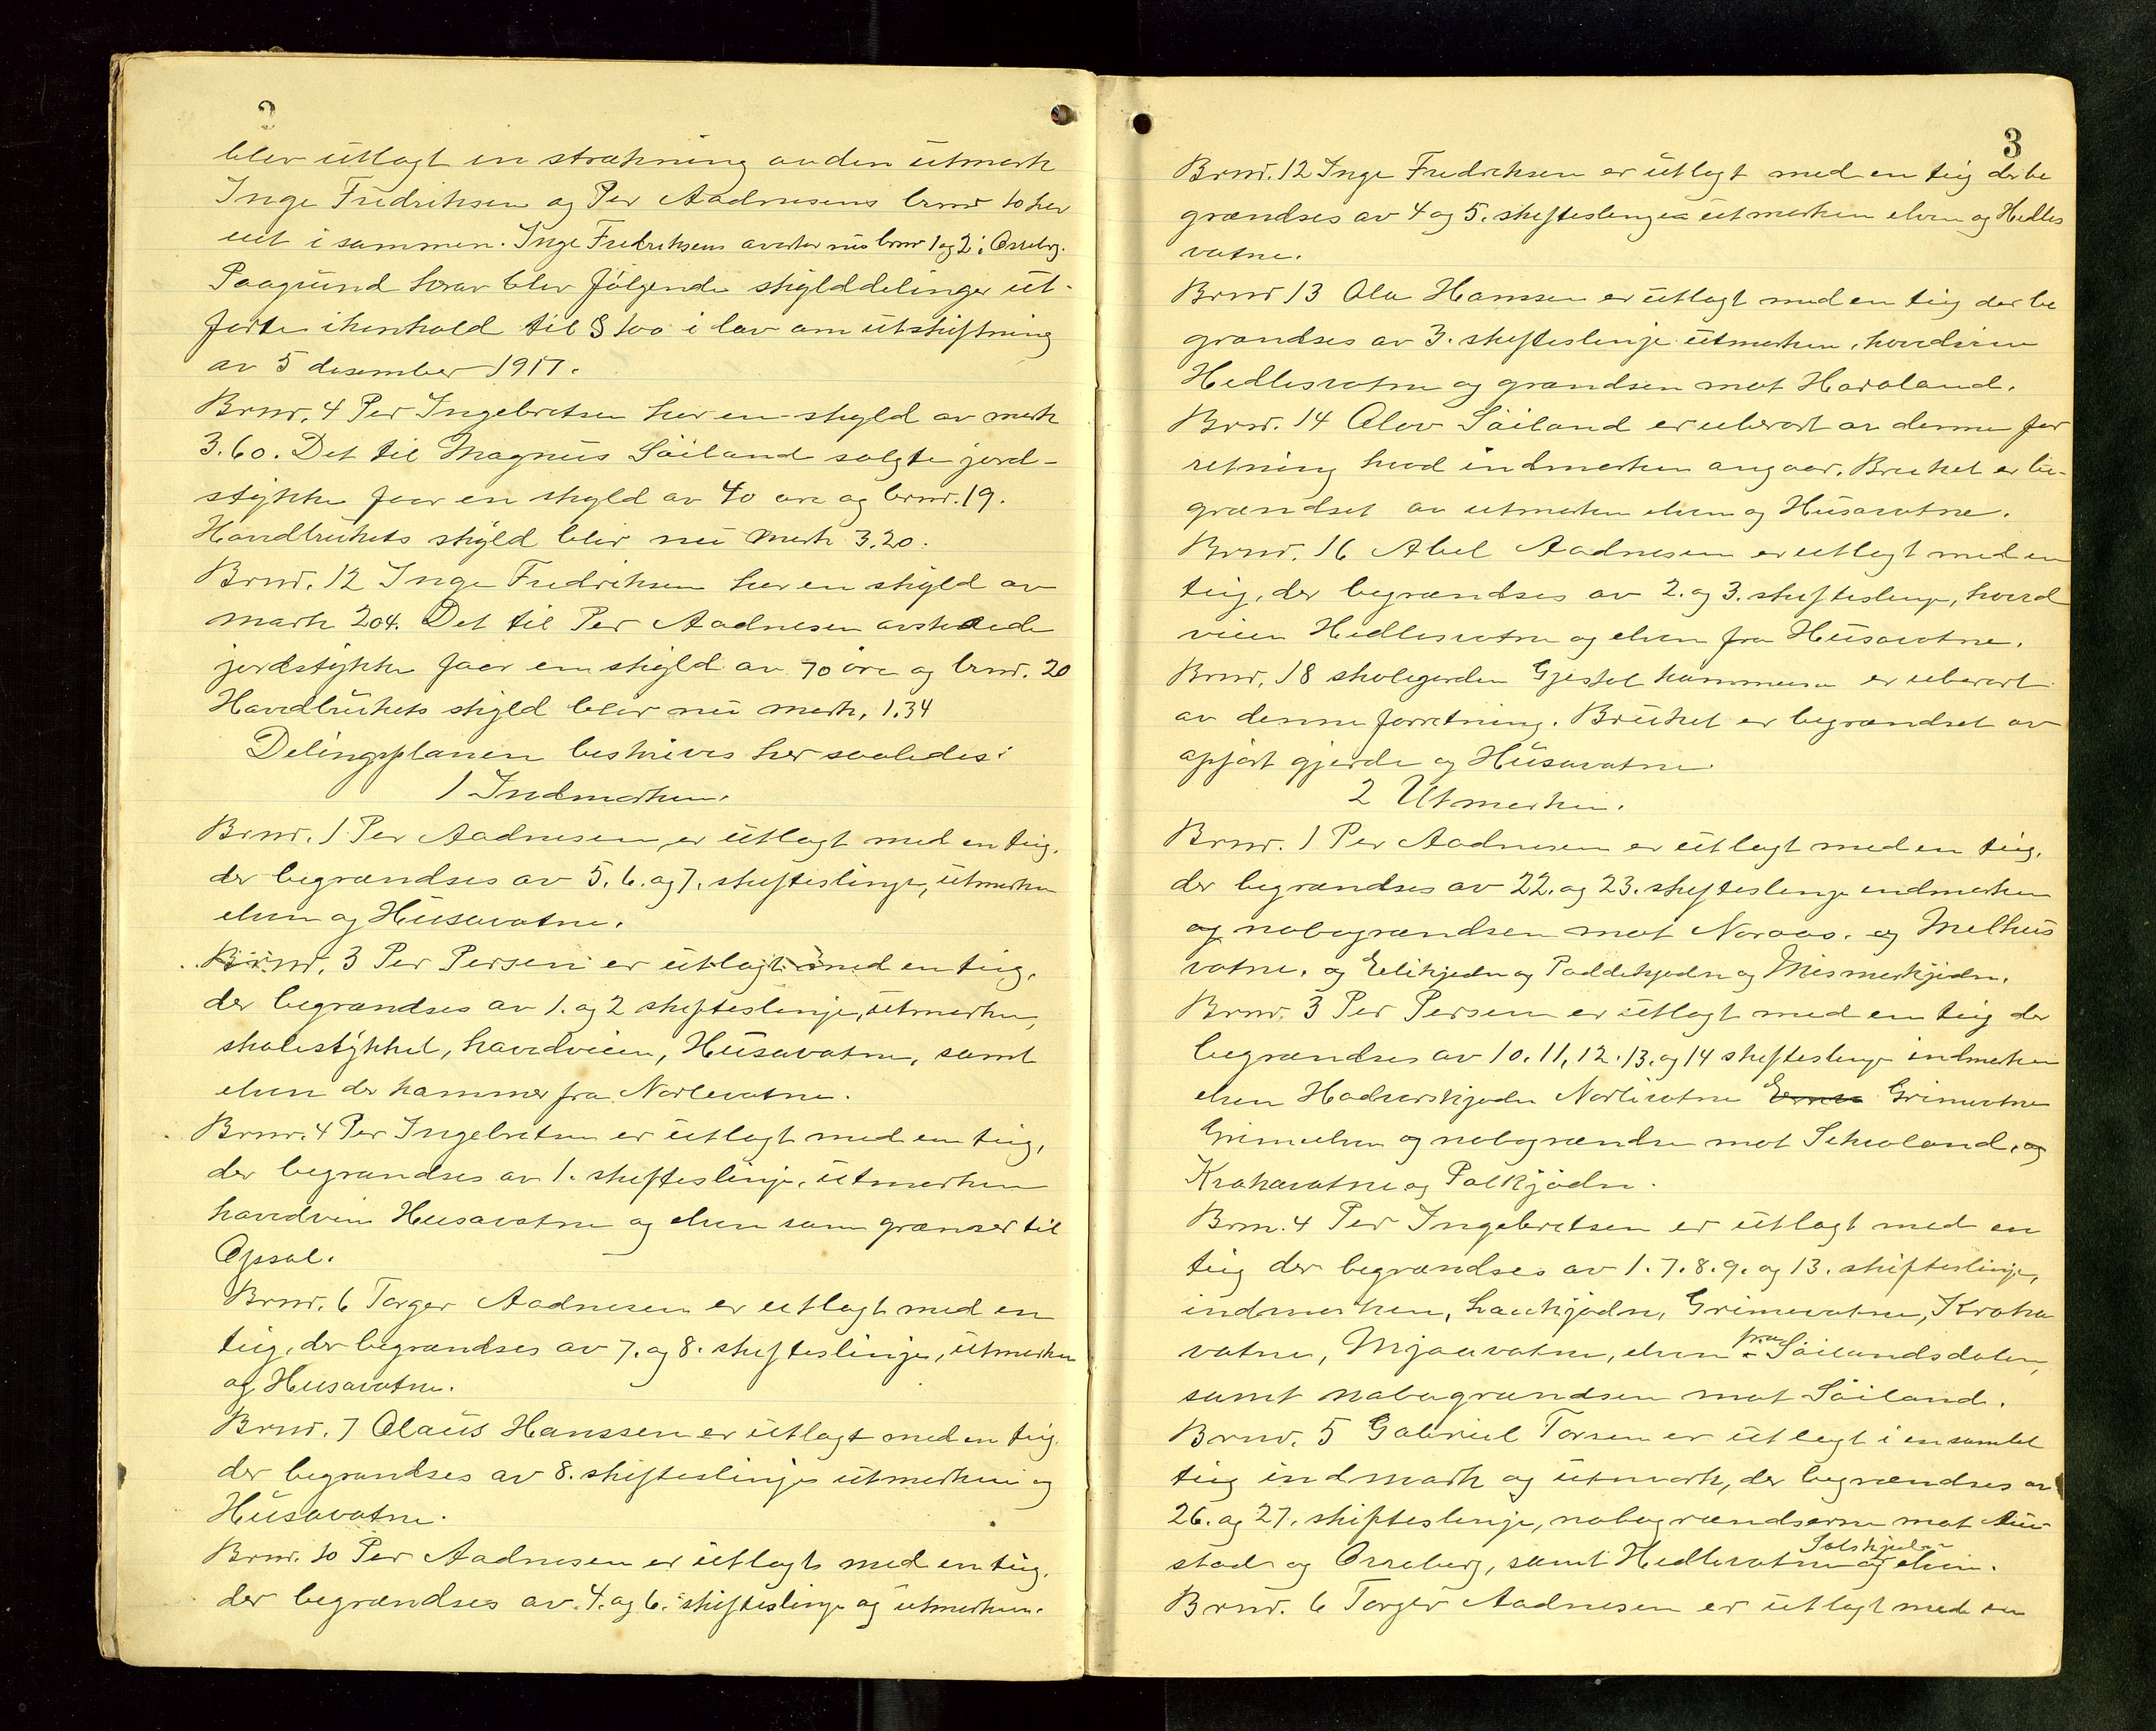 2
blev utlagt en strækning av den utmark
Inge Fredriksen og Per Aadnesens brnr 10 her
eiet i sammen. Inge Fredriksens brnr 1 og 2 i Orreberg.
Paagrund herav blev følgende skylddelinger ut-
førte ihenhold til § 100 i lov om utskiftning
av 5 desember 1917.
Brnr. 4 Per Ingebretsen har en skyld av mark
3.60. Det til Magnus Söiland solgte jord-
stykke faar en skyld av 40 øre og brnr. 19.
Hovedbrukets skyld blir nu mark 3.20.
Brnr. 12 Inge Fredriksen har en skyld av
mark 204. Det til Per Aadnesen avstaaede
jordstykke faar en skyld av 70 øre og brnr. 20
Hovedbrukets skyld blir nu mark. 1.34
Delingsplanen beskrives her saaledes:
1 Indmarken.
Brnr. 1 Per Aadnesen er utlagt med en teig,
der begrændses av 5. 6. og 7. skifteslinje, utmarken
elven og Husavatne.
Brnr. 3 Per Persen er utlagt med en teig,
der begrændses av 1. og 2 skifteslinje, utmarken,
skolestykket, hovedveien, Husavatne, samt
elven der kommer fra Norlevatne.
Brnr. 4 Per Ingebretsen er utlagt med en teig,
der begrændses av 1. skifteslinje, utmarken
hovedveien Husavatne og elven som grænser til
Opsal.
Brnr. 6 Torger Aadnesen er utlagt med en
teig, der begrændses av 7. og 8. skifteslinje, utmarken
og Husavatne.
Brnr. 7 Olaus Hanssen er utlagt med en teig
der begrændses av 8. skifteslinje utmarken og
Husavatne.
Brnr. 10 Per Aadnesen er utlagt med en teig,
der begrændses av 4. og 6. skifteslinje og utmarken.
3
Brnr. 12 Inge Fredriksen er utlagt med en teig der be
grændses av 4 og 5. skifteslinje utmarken elven og Hedles
vatne.
Brnr 13 Ola Hanssen er utlagt med en teig der be
grændses av 3. skifteslinje utmarken, hovedveien
Hedlesvatne og grændsen mot Havaland.
Brnr. 14 Olov Söiland er uberört av denne for
retning hvad indmarken angaar. Bruket er be-
grændset av utmarken elven og Husavatne.
Brnr. 16 Abel Aadnesen er utlagt med en
teig, der begrændses av 2. og 3. skifteslinje, hoved
veien Hedlesvatne og elven fra Husavatne.
Brnr. 18 skolegarden Gjestel kommune er uberört
av denne forretning. Bruket er begrændset av
opfört gjerde og Husavatne.
2 Utmarken.
Brnr. 1 Per Aadnesen er utlagt med en teig,
der begrændses av 22. og 23. skifteslinje indmarken
og nabogrændsen mot Noraas. og Melhus
vatne, og Elikjedn og Paddekjedn og Mismerkjedn.
Brnr. 3 Per Persen er utlagt med en teig der
begrændses av 10. 11. 12. 13. og 14 skifteslinje indmarken
elven Norlivatne Grimevatne
Grimeelven og nabogrændsen mot, og
Krokavatne og Polkjödn.
Brnr. 4 Per Ingebretsen er utlagt med en
teig der begrændses av 1. 7. 8. 9. og 13. skifteslinje,
indmarken, Grimevatne, Kroka
vatne, Mjaavatne, elven fra Söilandsdalen,
samt nabogrændsen mot Söiland.
Brnr. 5 Gabriel Torsen er utlagt i en samlet
teig indmark og utmark, der begrændses av
26. og 27. skifteslinje, nabogrændserne mot Au-
stad og Orreberg, samt Hedlesvatne og elven.
Brnr. 6 Torger Aadnesen er utlagt med en